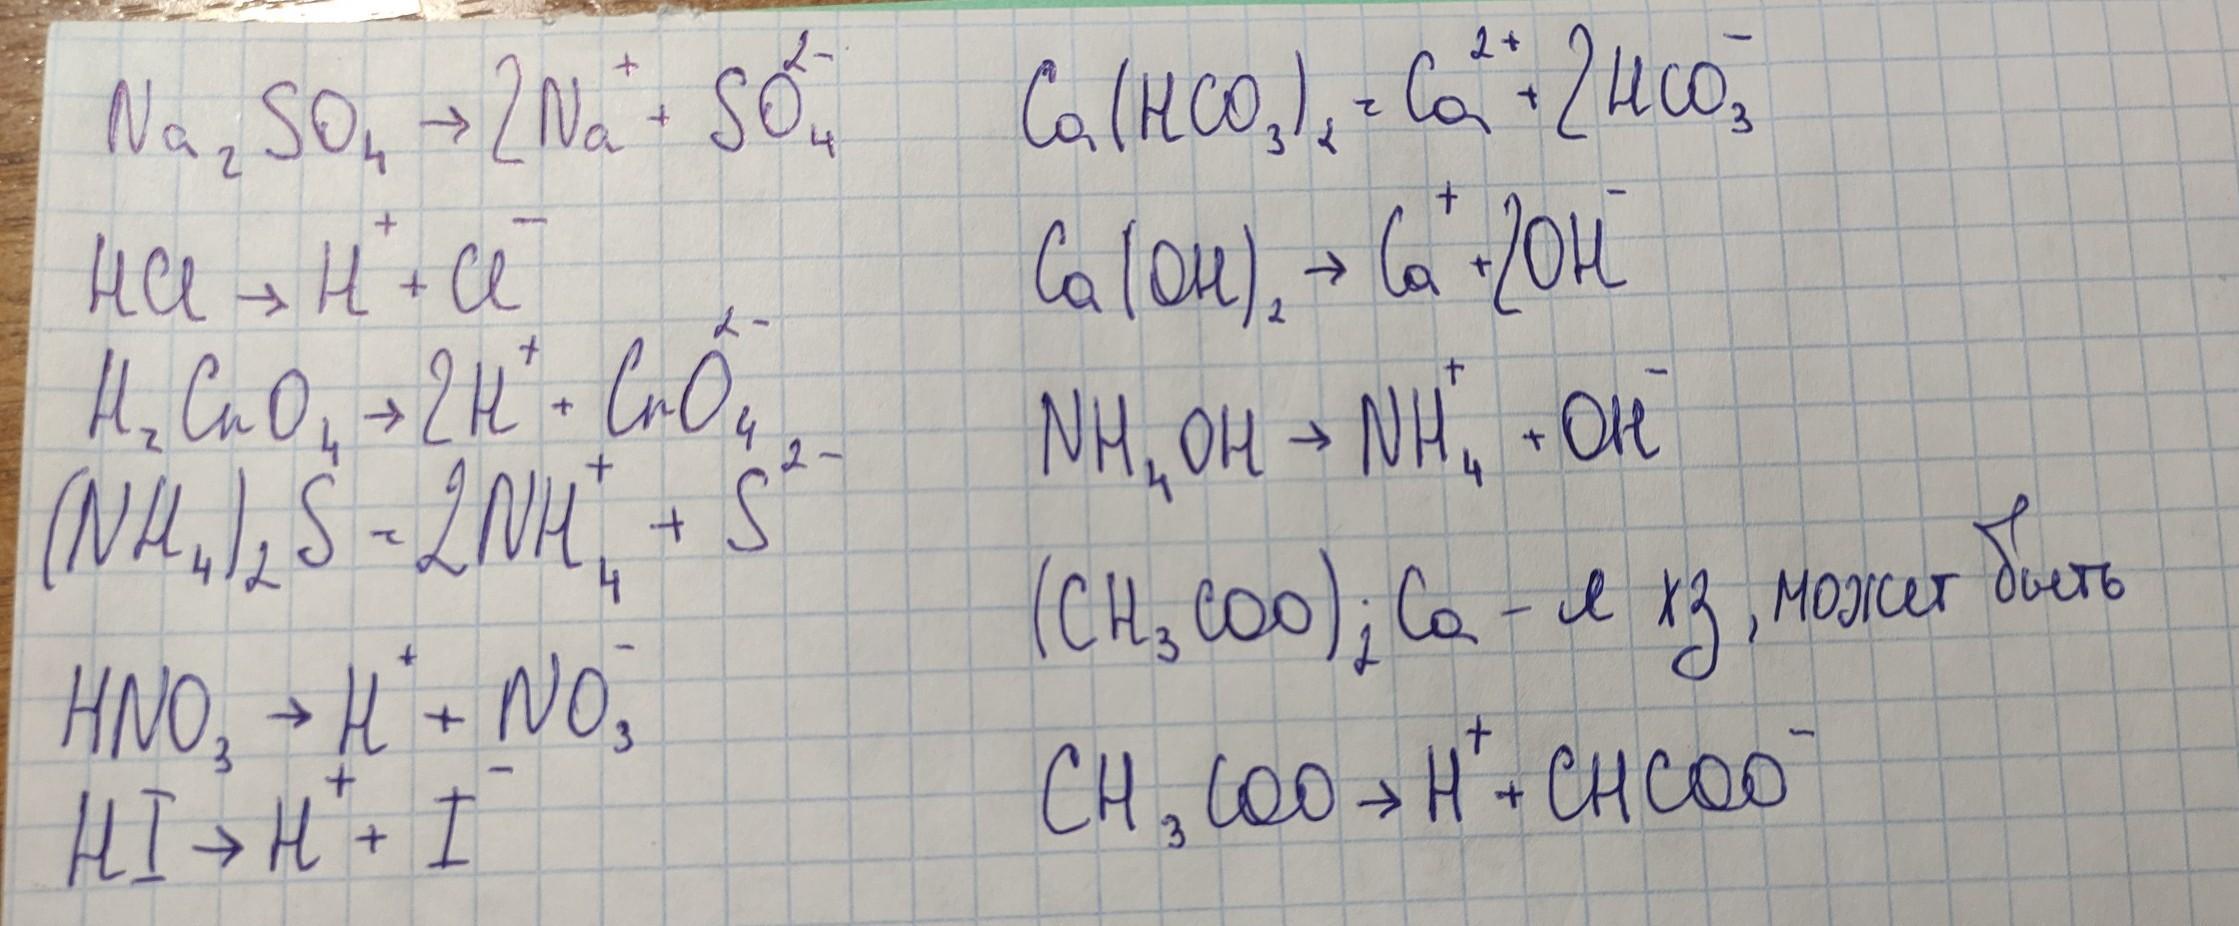 Na₂SO₄ → 2Na⁺ + SO₄²⁻
HCl → H⁺ + Cl⁻
H₂CrO₄ → 2H⁺ + CrO₄²⁻
(NH₄)₂S = 2NH₄⁺ + S²⁻
HNO₃ → H⁺ + NO₃⁻
HI → H⁺ + I⁻
Ca(HCO₃)₂ = Ca²⁺ + 2HCO₃⁻
Ca(OH)₂ → Ca⁺ + 2OH⁻
NH₄OH → NH₄⁺ + OH⁻
(CH₃COO)₂Ca - я хз, может быть
CH₃COO → H⁺ + CHCOO⁻